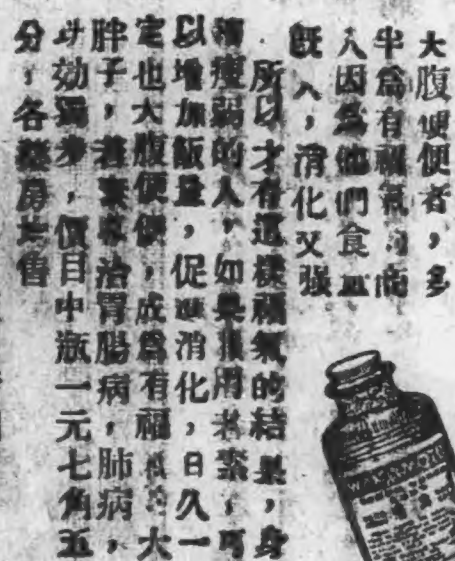 大腹便便者，多
半爲有福氣的商
人因爲他們食量
既大，消化又强
所以才有這樣福氣的結果，身
瘦弱的人，如果服用若素，可
以增加飯量，促進消化，日久一
定也大腹便便，成爲有福氣的大
胖子，若素治胃腸病，肺病，
功効獨步，價目中瓶一元七角五
分，各藥房均售